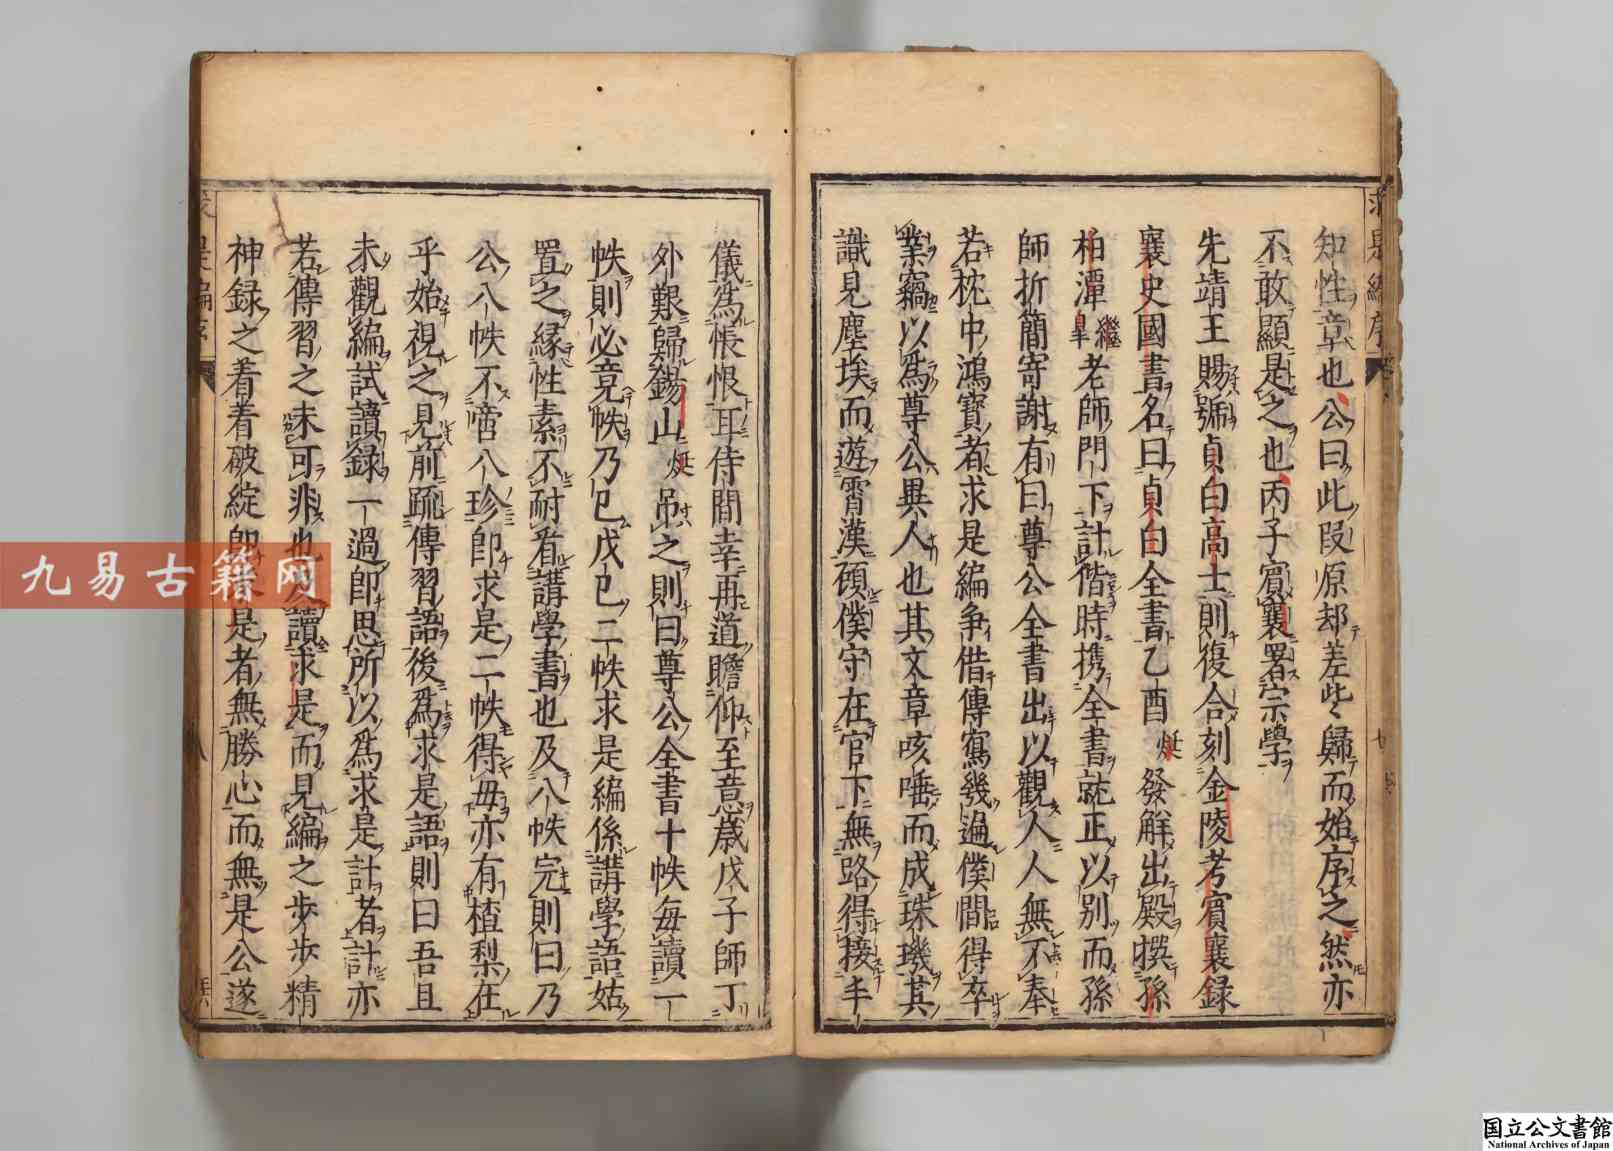 知性章也公曰此段原却差些歸而始序之然亦
不敢顯是之也丙子賓襄署宗學
先靖王賜號貞白高士則復合刻金陵考賓襄録
襄史國書名曰貞白全書乙酉烶發解出殿撰孫
柏潭繼臯老師門下計偕時携全書就正以別而孫
師折簡寄謝有曰尊公全書出以觀人人無不奉
若枕中鴻寳者求是編争借傳寫幾遍僕間得卒
業竊以爲尊公異人也其文章咳唾而成珠璣其
識見塵埃而遊霄漢顧僕守在官下無路得接丰
儀爲悵恨耳侍間幸再道瞻仰至意歳戊子師丁
外艱歸錫山烶吊之則曰尊公全書十帙每讀一
帙則必竟帙乃已戊已二帙求是編係講學語姑
置之縁性素不耐看講學書也及八帙完則曰乃
公八帙不啻八珍即求是二帙得毋亦有楂梨在
乎始視之見前疏傳習語後爲求是語則曰吾且
未觀編試讀録一過即思所以爲求是計者計亦
若傳習之未可非也及讀求是而見編之歩歩精
神録之着着破綻即求是者無勝心而無是公遂
求是編序
七
九易古籍网
国立公文書館
National Archives of Japan